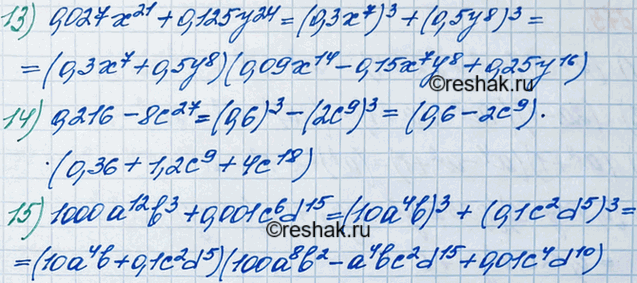 13) 0,027x²¹ + 0,125y²⁴ = (0,3x⁷)³ + (0,5y⁸)³ =
= (0,3x⁷ + 0,5y⁸)(0,09x¹⁴ - 0,15x⁷y⁸ + 0,25y¹⁶)
14) 0,216 - 8c²⁷ = (0,6)³ - (2c⁹)³ = (0,6 - 2c⁹) ·
· (0,36 + 1,2c⁹ + 4c¹⁸)
15) 1000a¹²b³ + 0,001c⁶d¹⁵ = (10a⁴b)³ + (0,1c²d⁵)³ =
= (10a⁴b + 0,1c²d⁵)(100a⁸b² - a⁴bc²d¹⁵ + 0,01c⁴d¹⁰)